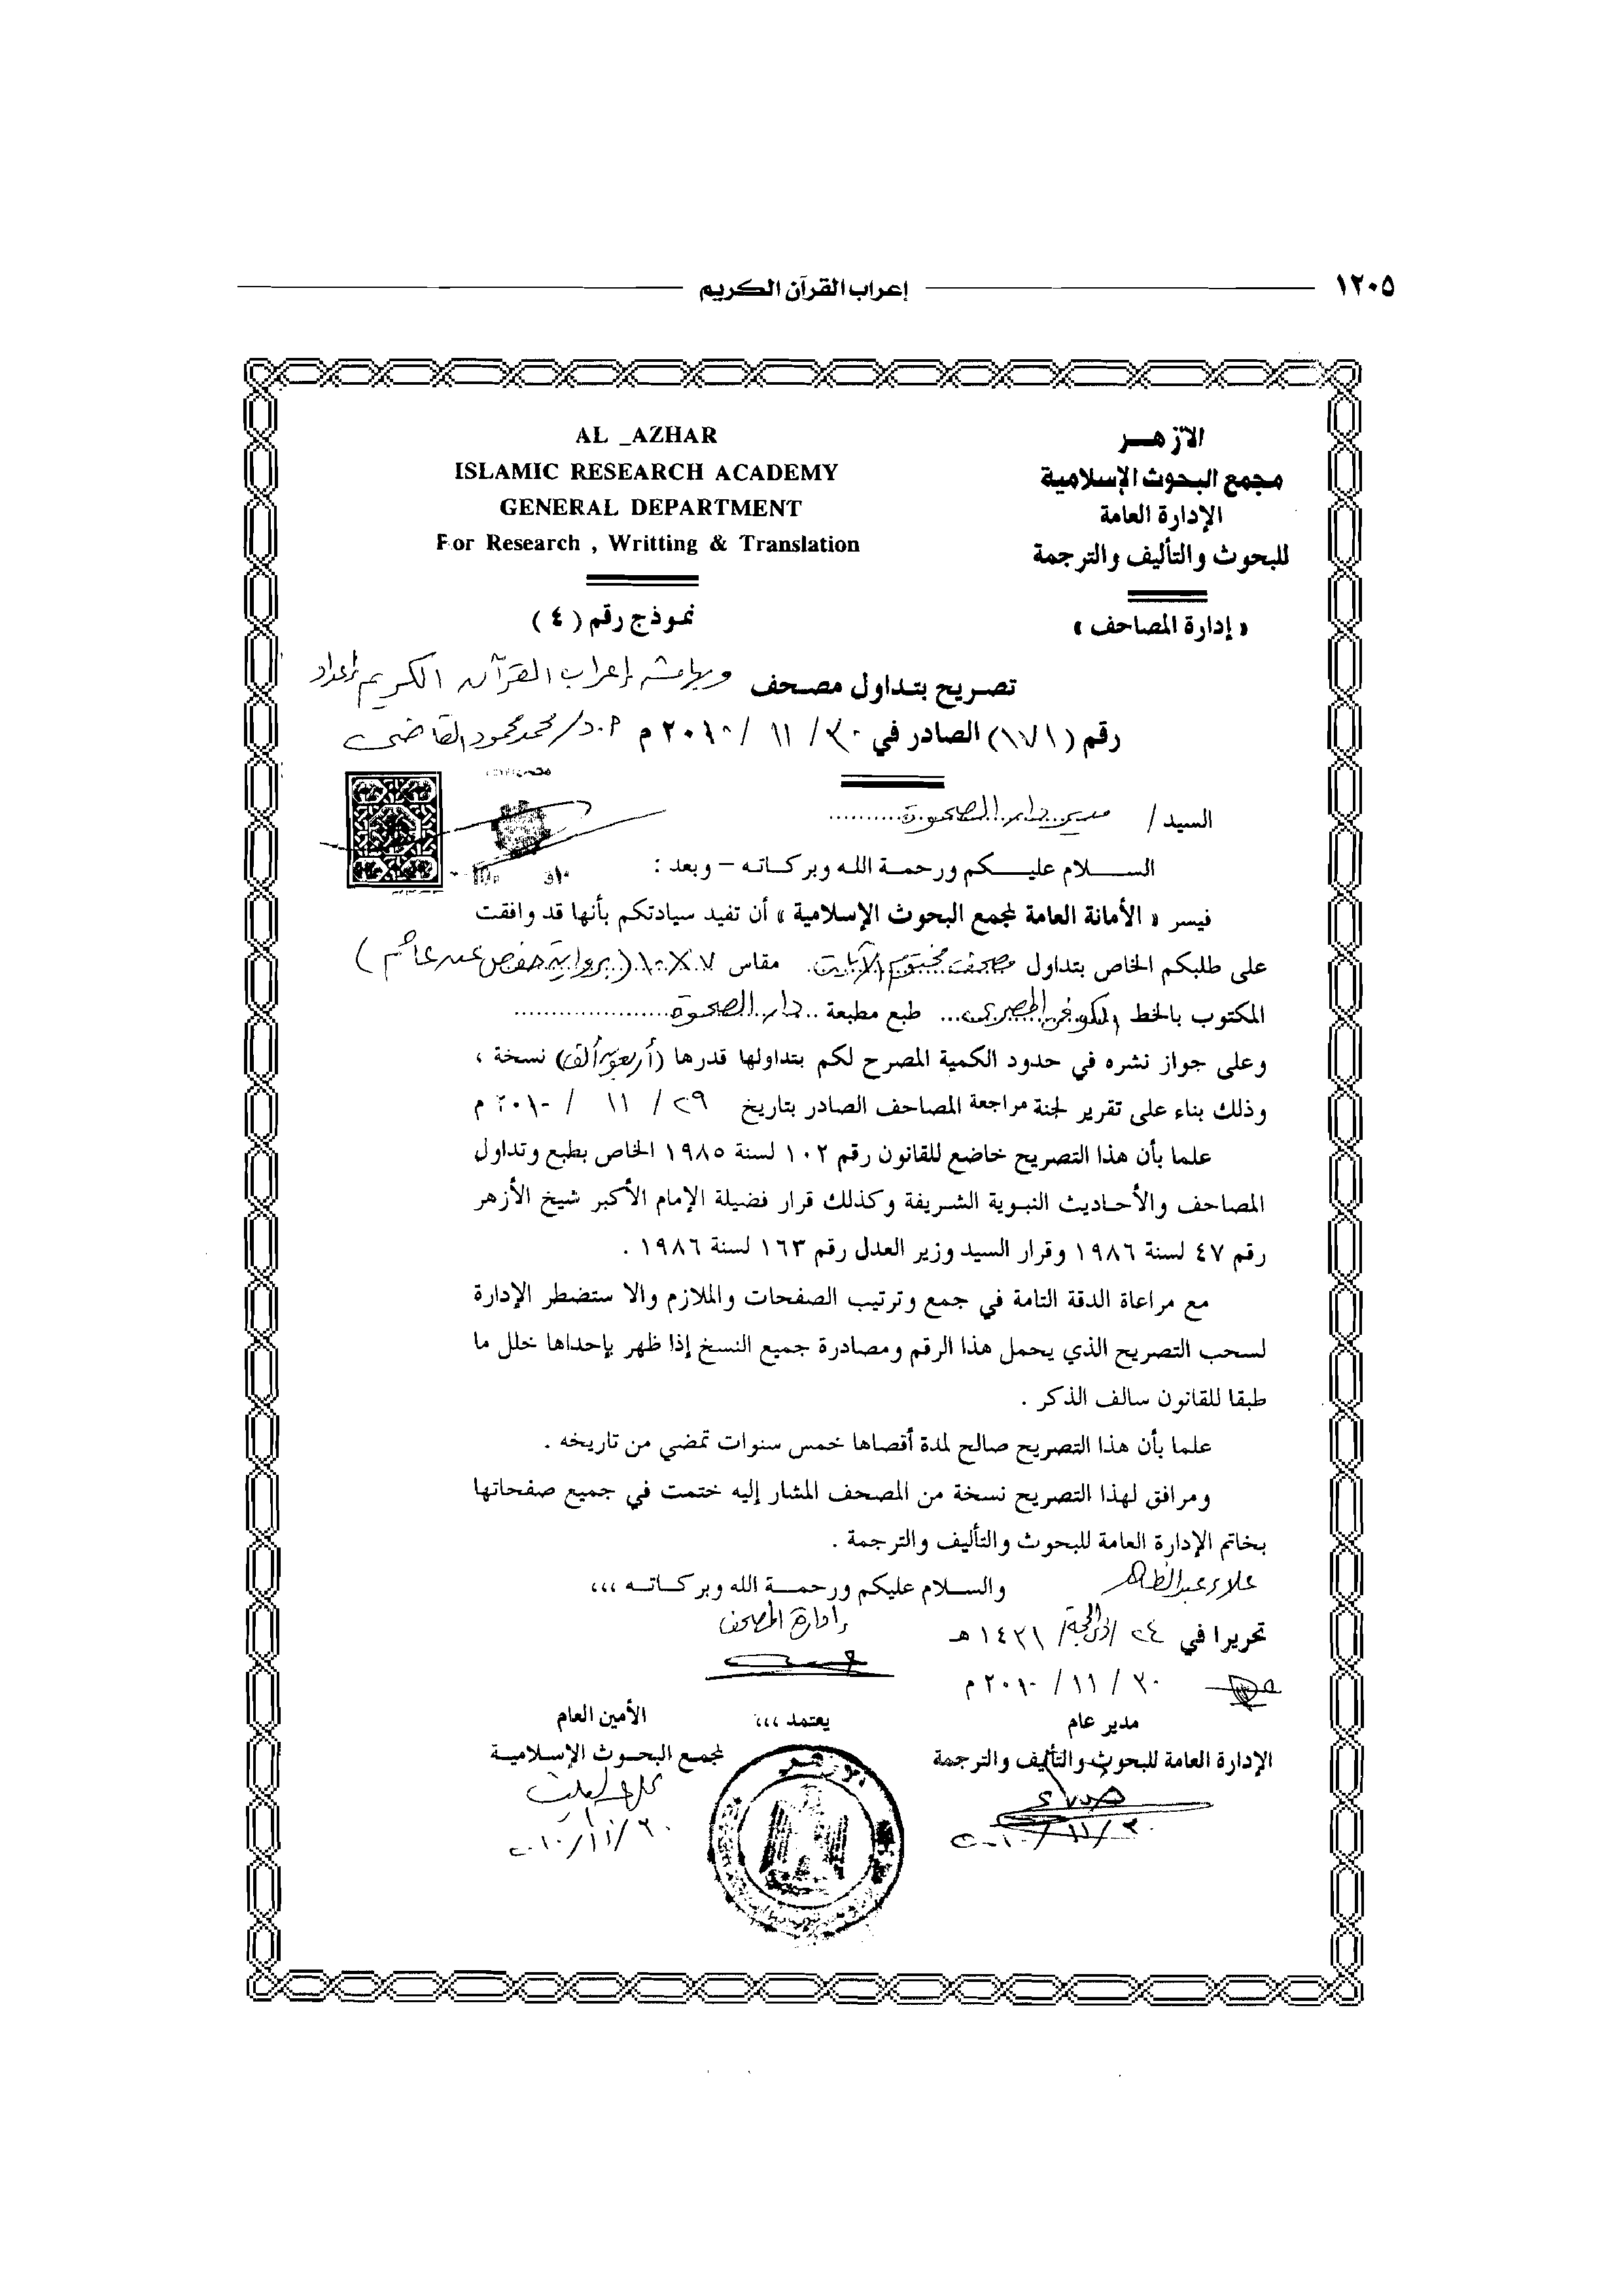 ١٢٠٥
إعراب القرآن الكريم
AL _AZHAR
ISLAMIC RESEARCH ACADEMY
GENERAL DEPARTMENT
For Research , Writting & Translation
الأزهر
مجمع البحوث الإسلامية
الإدارة العامة
للبحوث والتأليف والترجمة
نموذج رقم ( ٤ )
« إدارة المصاحف »
تصريح بتداول مصحف وبهامشه إعراب القرآن الكريم إعداد
رقم (١٧١) الصادر في ٣٠/ ١١ /٢٠١٠ م أ.د/ محمد محمود القاضي
السيد / مدير دار الصحوة
السلام عليكم ورحمة الله وبركاته – وبعد :
فيسر « الأمانة العامة لمجمع البحوث الإسلامية » أن تفيد سيادتكم بأنها قد وافقت
على طلبكم الخاص بتداول مصحف مختوم الآيات مقاس ٧×١٠ (برواية حفص عن عاصم)
المكتوب بالخط الكوفي المصري طبع مطبعة دار الصحوة
وعلى جواز نشره في حدود الكمية المصرح لكم بتداولها قدرها (أربعة ألف) نسخة ،
وذلك بناء على تقرير لجنة مراجعة المصاحف الصادر بتاريخ ٢٩ / ١١ / ٢٠١٠ م
علما بأن هذا التصريح خاضع للقانون رقم ١٠٢ لسنة ١٩٨٥ الخاص بطبع وتداول
المصاحف والأحاديث النبوية الشريفة وكذلك قرار فضيلة الإمام الأكبر شيخ الأزهر
رقم ٤٧ لسنة ١٩٨٦ وقرار السيد وزير العدل رقم ١٦٣ لسنة ١٩٨٦ .
مع مراعاة الدقة التامة في جمع وترتيب الصفحات والملازم والا ستضطر الإدارة
لسحب التصريح الذي يحمل هذا الرقم ومصادرة جميع النسخ إذا ظهر بإحداها خلل ما
طبقا للقانون سالف الذكر .
علما بأن هذا التصريح صالح لمدة أقصاها خمس سنوات تمضي من تاريخه .
ومرافق لهذا التصريح نسخة من المصحف المشار إليه ختمت في جميع صفحاتها
بخاتم الإدارة العامة للبحوث والتأليف والترجمة .
والسلام عليكم ورحمة الله وبركاته ،،،
علاء عبد الظاهر
إدارة المصاحف
تحريرا في ٢٤ /ذي الحجة/ ١٤٣١ هـ
٣٠ / ١١ / ٢٠١٠ م
مدير عام
الإدارة العامة للبحوث والتأليف والترجمة
٣٠/١١/٢٠١٠
يعتمد ،،،
الأمين العام
لمجمع البحوث الإسلامية
٣٠/١١/٢٠١٠
الأزهر